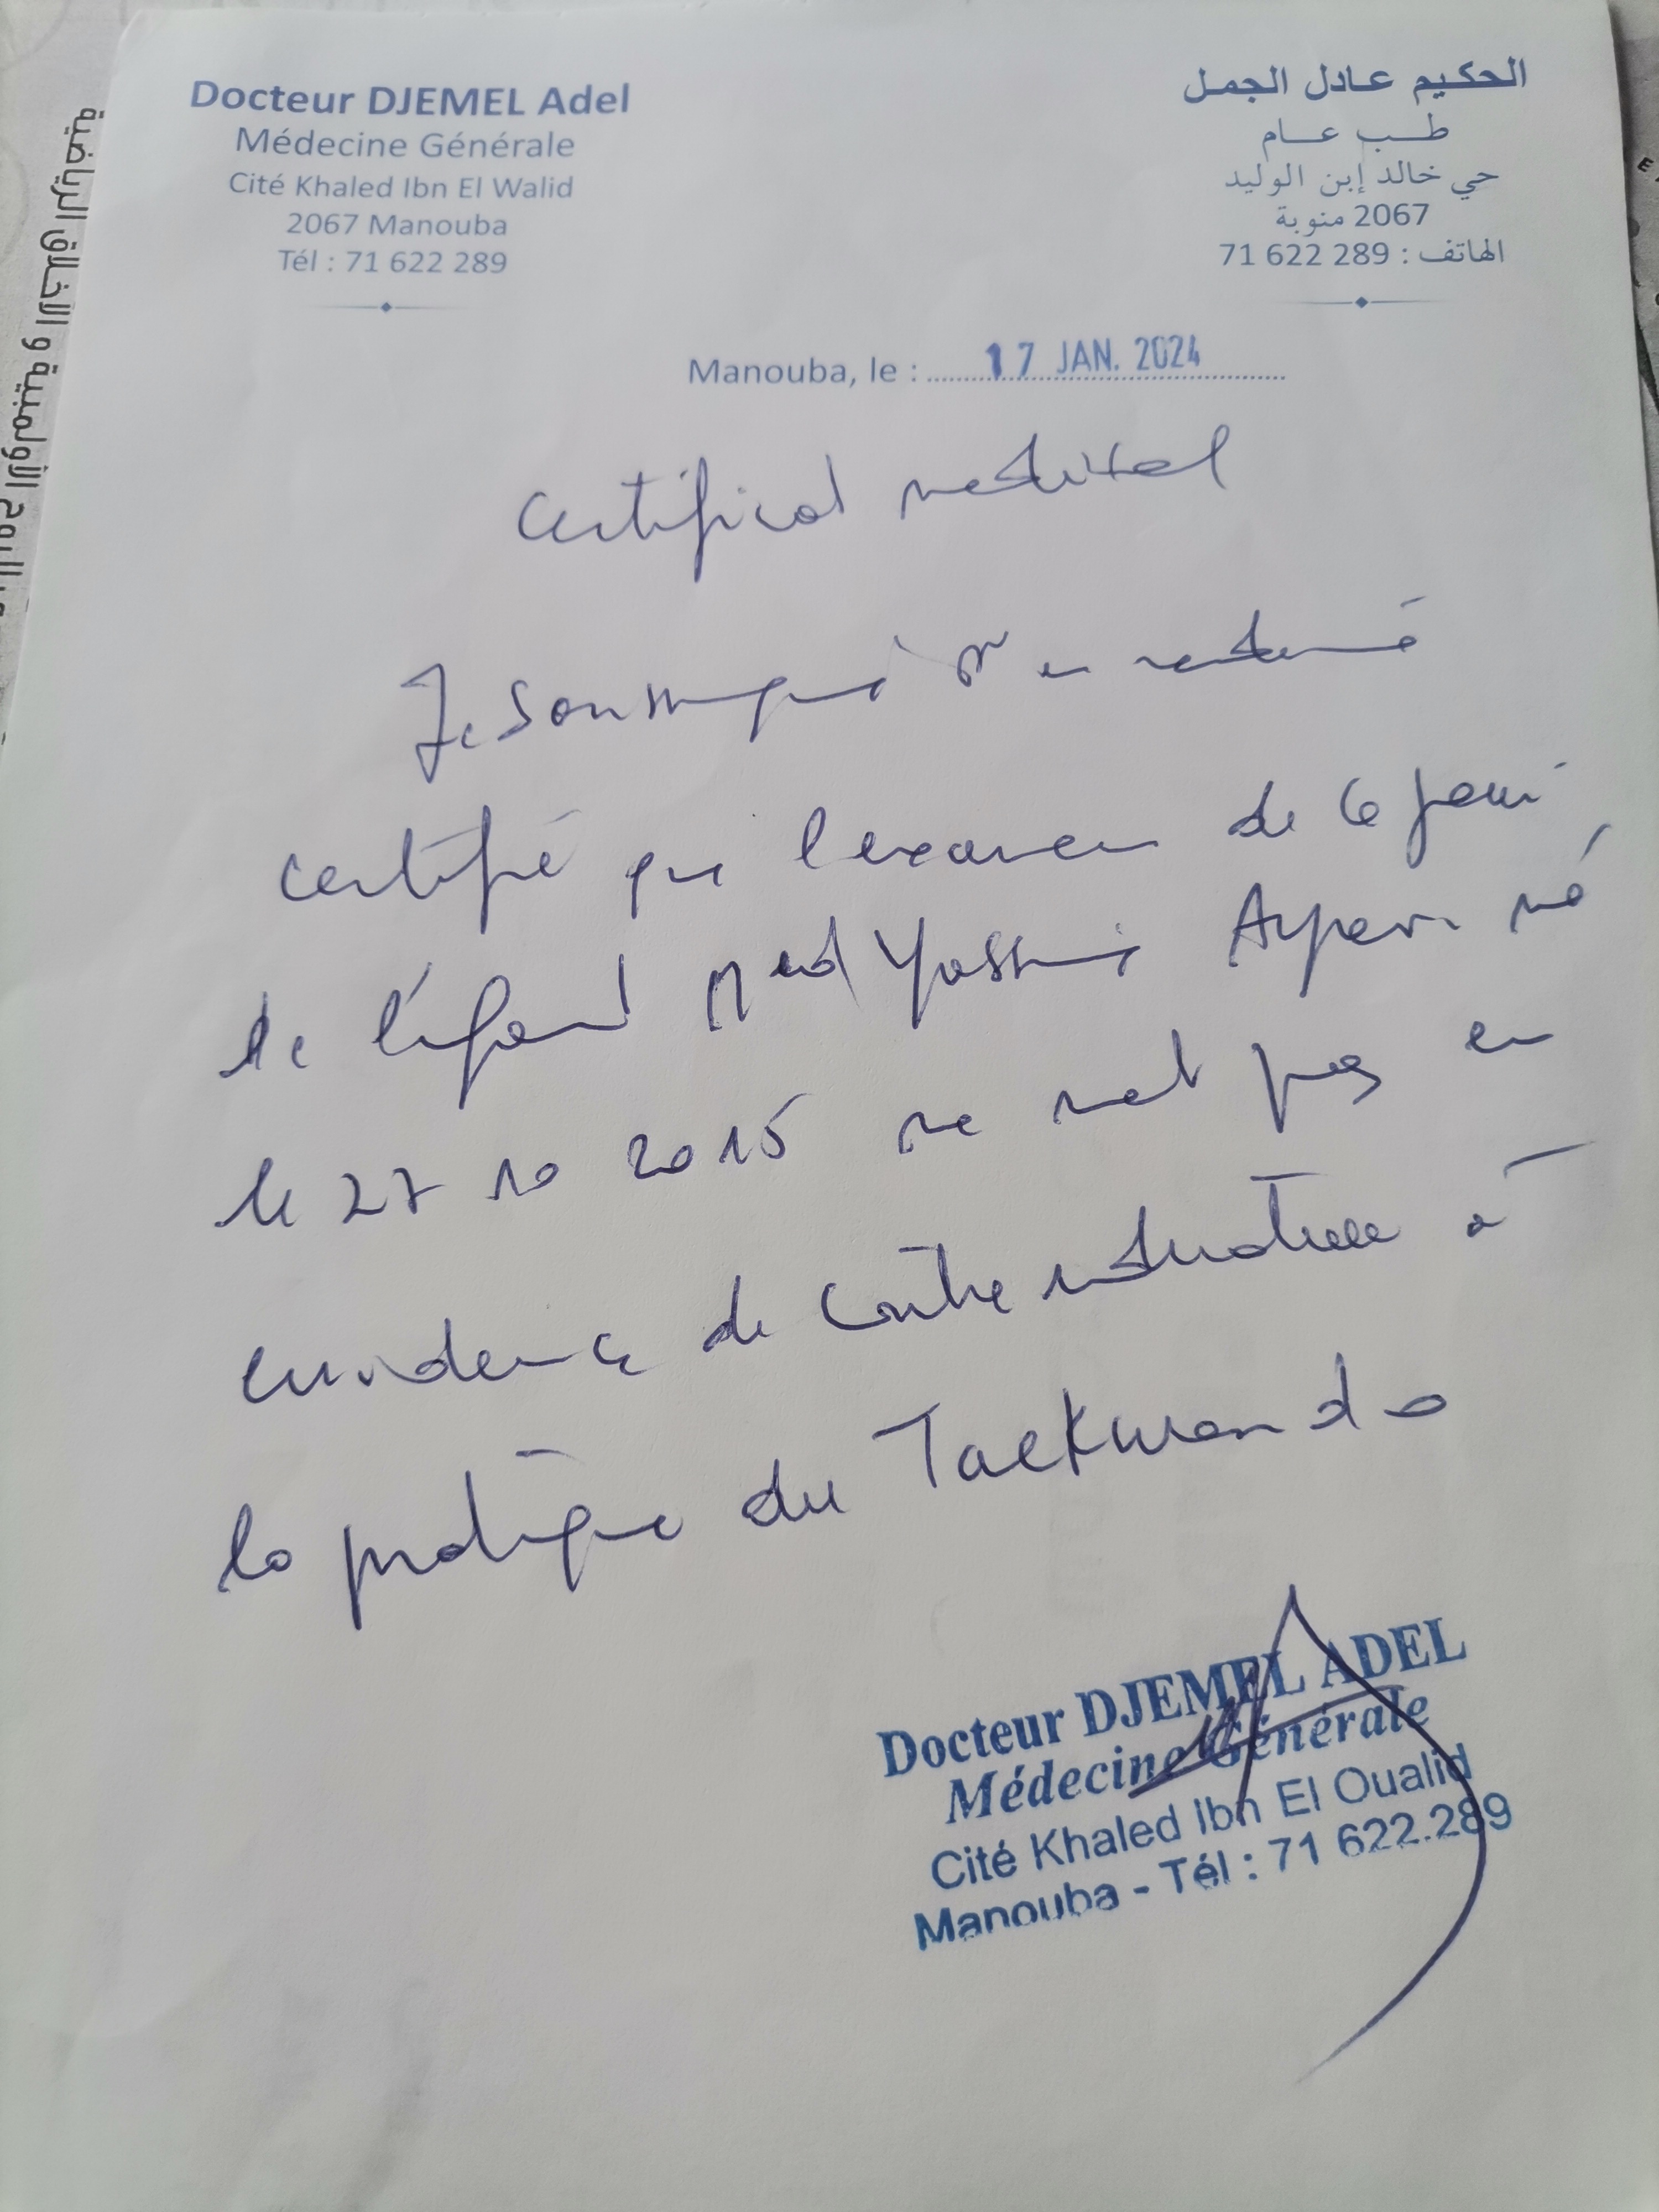 Docteur DJEMEL Adel
Médecine Générale
Cité Khaled Ibn El Walid
2067 Manouba
Tél : 71 622 289
الحكيم عادل الجمل
طب عام
حي خالد إبن الوليد
2067 منوبة
الهاتف : 289 622 71
Manouba, le : 17 JAN. 2024
Certificat medical
Je soussigné Dr en medecine
certifié que l'examen de ce jour
de l'enfant Med Yassine né
le 27 10 2015 ne met pas en
evidence de contre indication à
la pratique du Taekwondo
Docteur DJEMEL ADEL
Médecine Générale
Cité Khaled Ibn El Oualid
Manouba - Tél : 71 622.289
الأولمبية و الأخلاق الرياضية